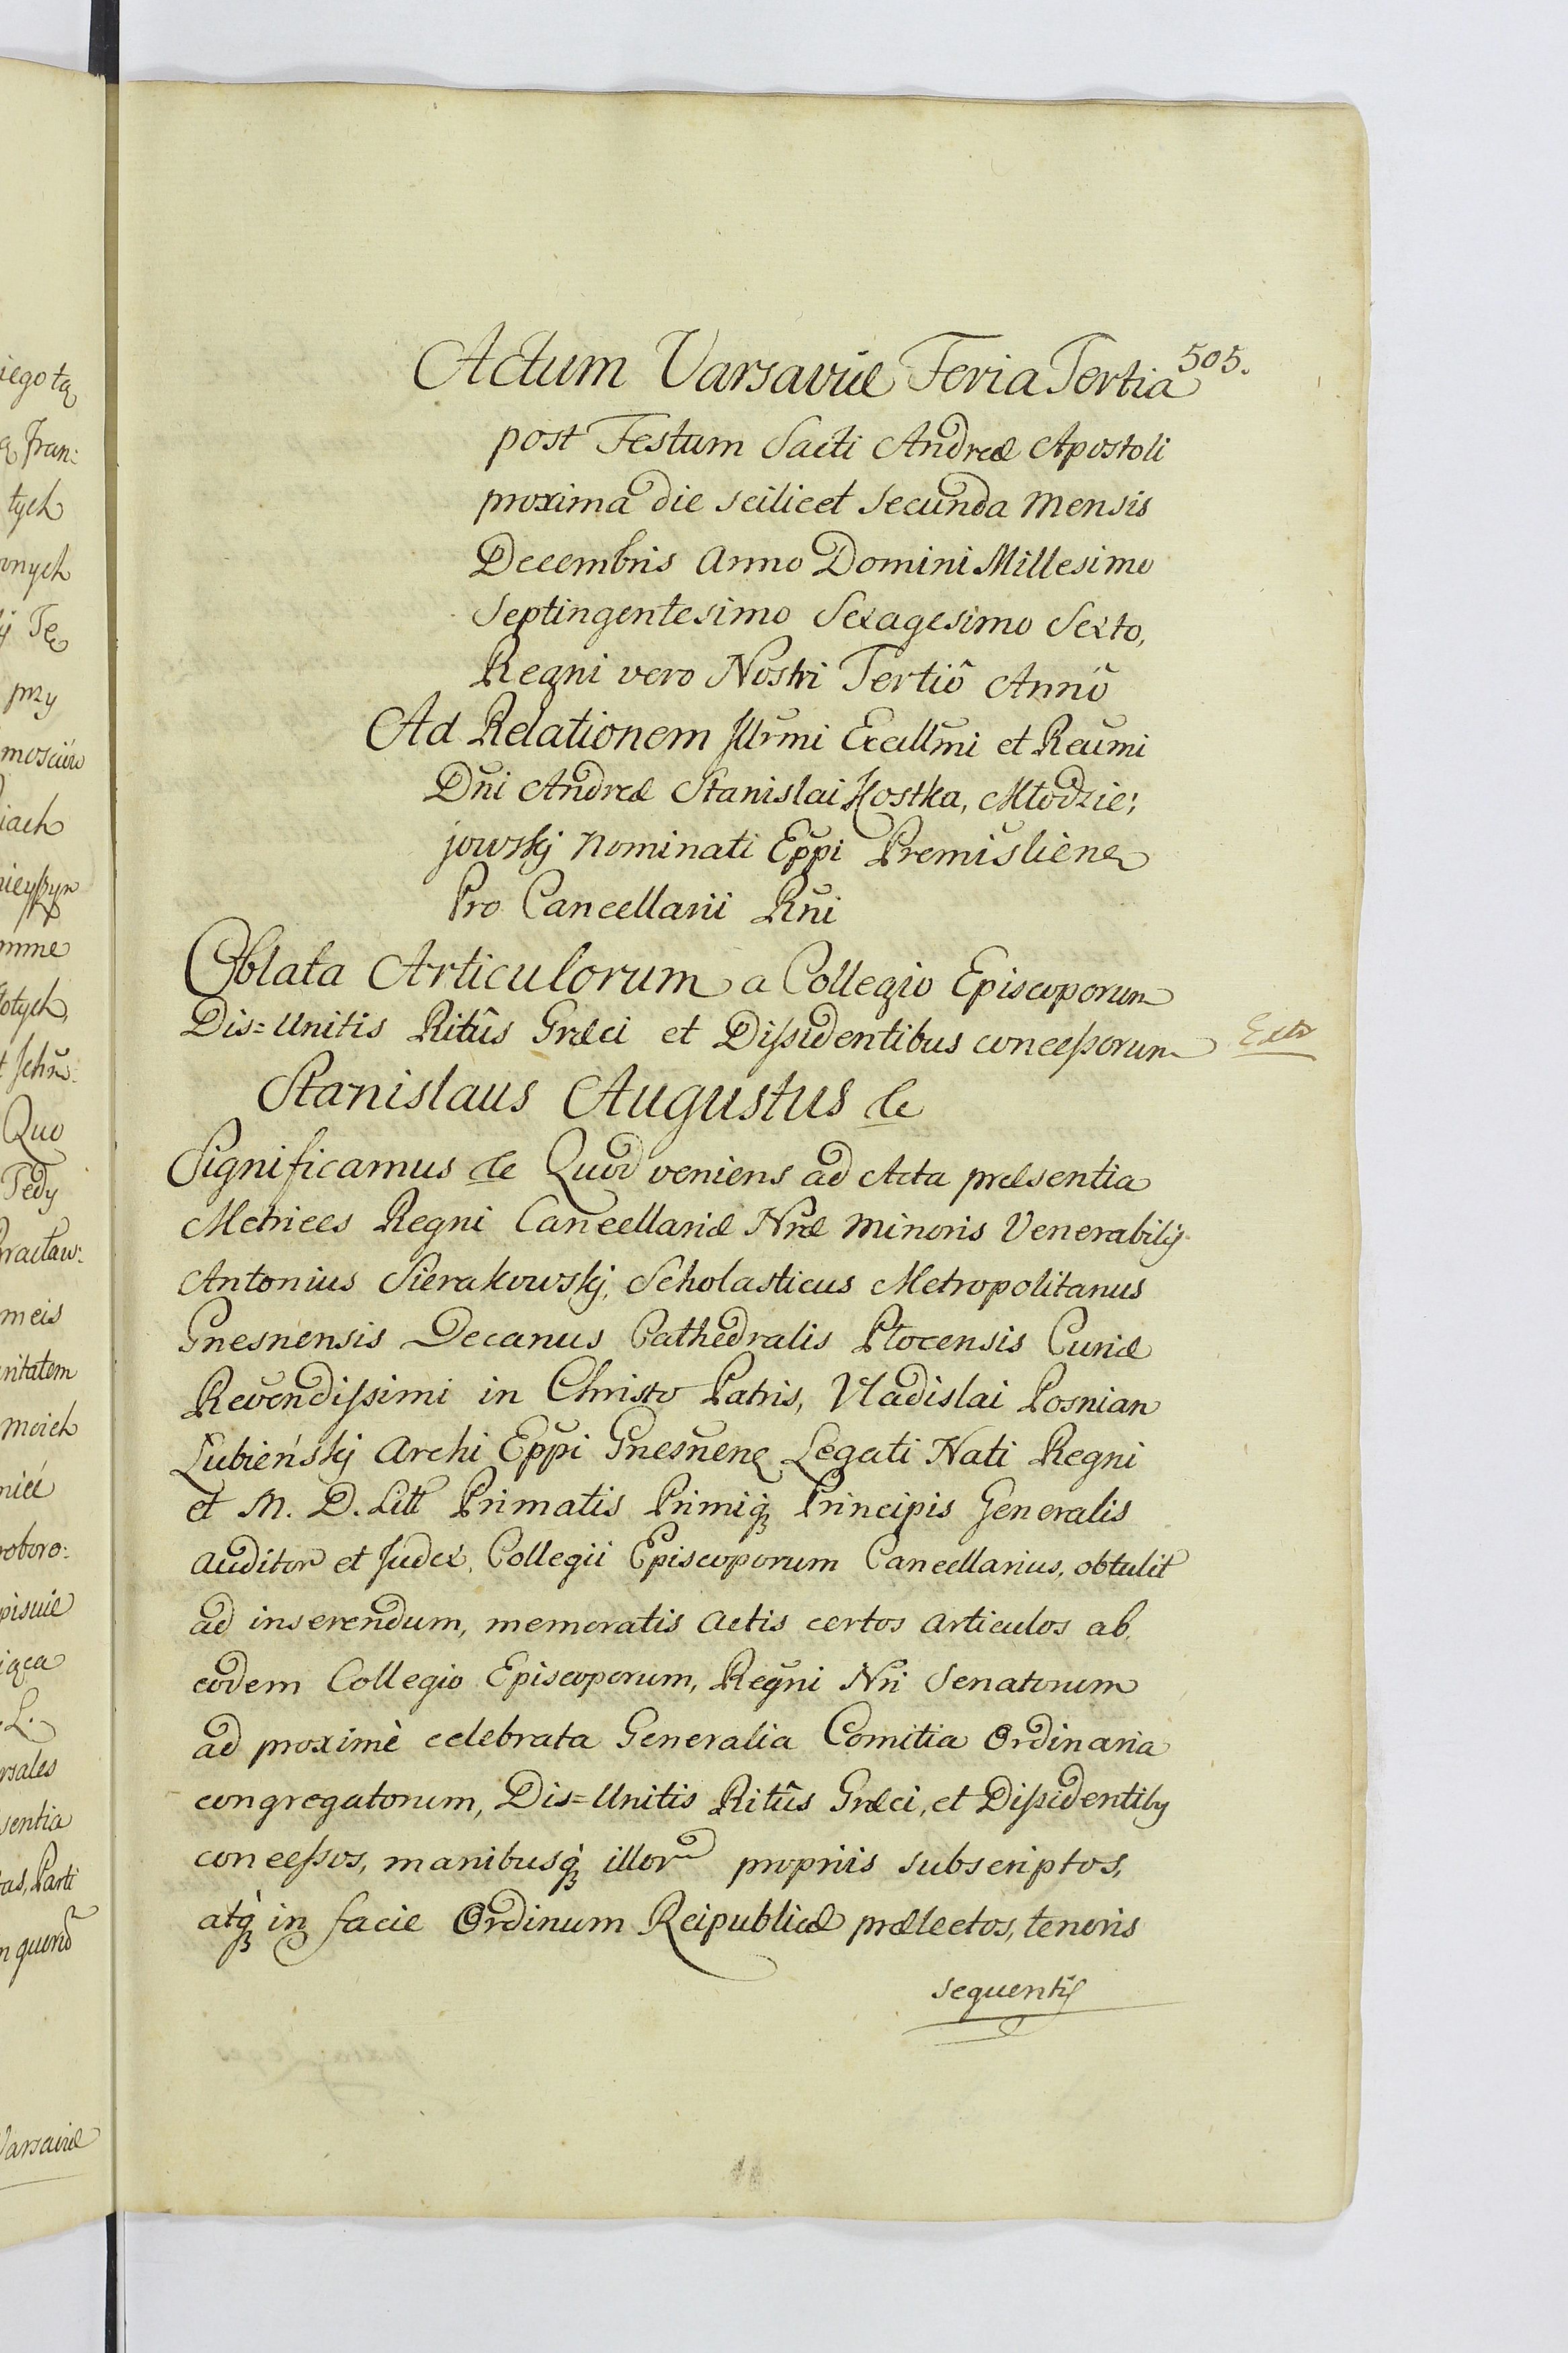 505.
Actum Varsaviæ Feria Tertia
post Festum Sacti Andreæ Apostoli
proxima die scilicet secunda mensis
Decembris Anno Domini Millesimo
Septingentesimo Sexagesimo Sexto,
Regni vero Nostri Tertiô Annô
Ad Relationem Illrmi Excellmi et Reumi
Dni Andreæ Stanislai Kostka, Młodzie:
jowskij nominati Eppi Premislien
Pro Cancellarii Rni
Oblata Articulorum a Collegio Episcoporum
Dis=Unitis Ritûs Græci et Dissidentibus concessorum
Extr
Stanislaus Augustus &c
Significamus &c Quod veniens ad Acta præsentia
Metrices Regni Cancellariæ Nræ minoris Venerabilis
Antonius Sierakowskj, Scholasticus Metropolitanus
Gnesnensis Decanus Cathedralis Plocensis Curiæ
Reverendissimi in Christo Patris, Vladislai Posnian
Łubieńskij Archi Eppi Gnesnen Legati Nati Regni
et M. D. Litt Primatis Primiq Principis Generalis
Auditor et Judex, Collegii Episcoporum Cancellarius, obtulit
ad inserendum, memoratis actis certos articulos ab
eodem Collegio Episcoporum, Regni Nri Senatorum
ad proximè celebrata Generalia Comitia Ordinaria
congregatorum, Dis=Unitis Ritûs Græci, et Dissidentibus
concessos, manibusq illor propriis subscriptos,
atq in facie Ordinum Reipublicæ prælectos, tenoris
sequentis
iegotą
Fran:
tych
wnych
przy
iach
mme
Quo
Tedy
Bracław:
meis
moich
roboro:
L.
rsales
sentia
tas, Parti
Varsaviæ